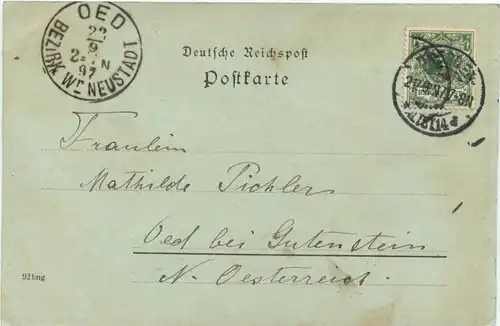 OED
22
9
97
BEZIRK Wr NEUSTADT
Deutsche Reichspost
Postkarte
Fraulein
Mathilde Pichler
Oed bei Gutenstein
N. Oesterreich
92bng